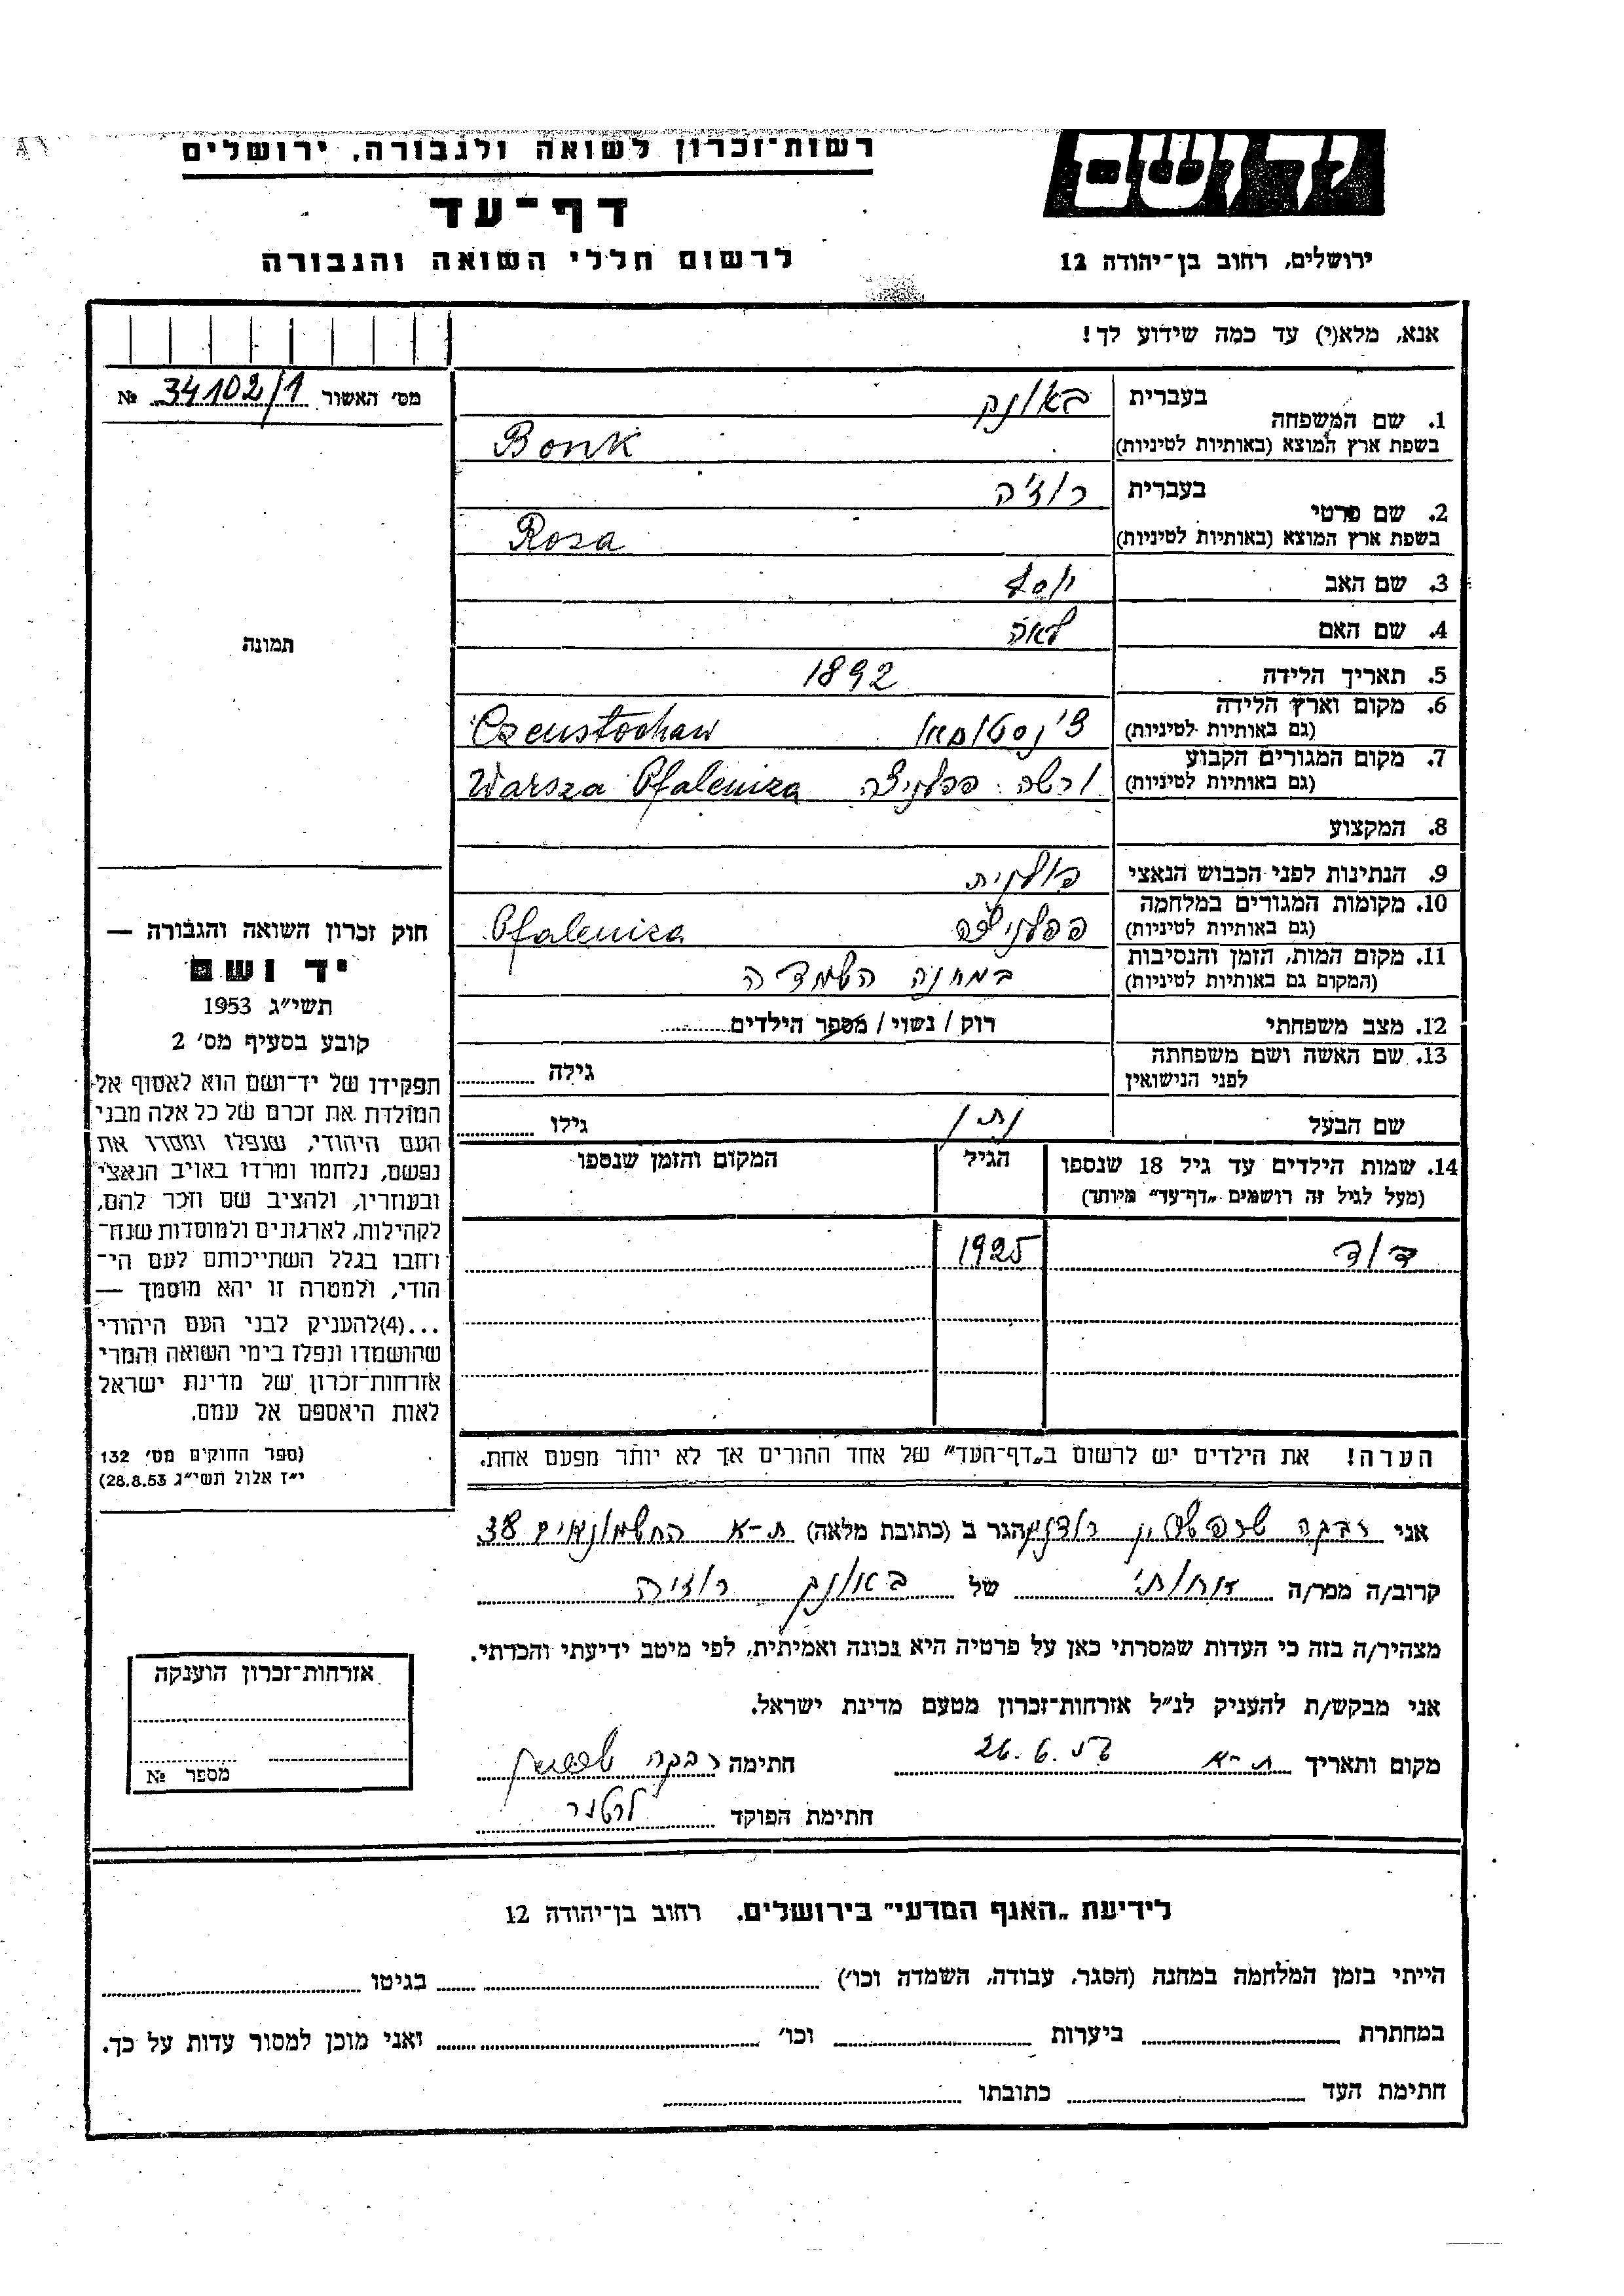 רשות־זכרון לשואה ולגבורה, ירושלים
יד ושם
דף־עד
לרשום חללי השואה והגבורה
ירושלים, רחוב בן־יהודה 12
אנא, מלא(י) עד כמה שידוע לך!
מס׳ האשור 34102/1 №
1. שם המשפחה בעברית באונק
בשפת ארץ המוצא (באותיות לטיניות) Bonk
2. שם פרטי בעברית רוזיה
בשפת ארץ המוצא (באותיות לטיניות) Rosa
3. שם האב יוסף
4. שם האם לאה
5. תאריך הלידה 1892
6. מקום וארץ הלידה
(גם באותיות לטיניות) Czenstochaw
7. מקום המגורים הקבוע
(גם באותיות לטיניות) ורשה. פפלניצה Warsza Ofaleniza
8. המקצוע
9. הנתינות לפני הכבוש הנאצי פולנית
10. מקומות המגורים במלחמה
(גם באותיות לטיניות) פפלניצה Ofaleniza
11. מקום המות, הזמן והנסיבות
(המקום גם באותיות לטיניות) במחנה השמדה
12. מצב משפחתי רוק / נשוי / מספר הילדים
13. שם האשה ושם משפחתה
לפני הנישואין גילה
שם הבעל נתן גילו
14. שמות הילדים עד גיל 18 שנספו הגיל המקום והזמן שנספו
(מעל לגיל זה רושמים „דף־עד” מיוחד)
דוד 1925
הערה! את הילדים יש לרשום ב„דף־העד” של אחד ההורים אך לא יותר מפעם אחת.
תמונה
חוק זכרון השואה והגבורה —
יד ושם
תשי״ג 1953
קובע בסעיף מס׳ 2
תפקידו של יד־ושם הוא לאסוף אל
המולדת את זכרם של כל אלה מבני
העם היהודי, שנפלו ומסרו את
נפשם, נלחמו ומרדו באויב הנאצי
ובעוזריו, ולהציב שם וזכר להם,
לקהילות, לארגונים ולמוסדות שנח־
רחבו בגלל השתייכותם לעם הי־
הודי, ולמטרה זו יהא מוסמך —
...(4)להעניק לבני העם היהודי
שהושמדו ונפלו בימי השואה והמרי
אזרחות־זכרון של מדינת ישראל
לאות היאספם אל עמם.
(ספר החוקים מס׳ 132
י״ז אלול תשי״ג 28.8.53)
אני רבקה הגר ב (כתובת מלאה) ת-א החשמונאים 38
קרוב/ה מכר/ה של באונק רוזיה
מצהיר/ה בזה כי העדות שמסרתי כאן על פרטיה היא נכונה ואמיתית, לפי מיטב ידיעתי והכרתי.
אני מבקש/ת להעניק לנ״ל אזרחות־זכרון מטעם מדינת ישראל.
מקום ותאריך ת-א 26.6. חתימה רבקה
חתימת הפוקד
אזרחות־זכרון הוענקה
מספר №
לידיעת „האגף המדעי” בירושלים, רחוב בן־יהודה 12
הייתי בזמן המלחמה במחנה (הסגר, עבודה, השמדה וכו׳) בגיטו
במחתרת ביערות וכו׳ ואני מוכן למסור עדות על כך.
חתימת העד כתובתו